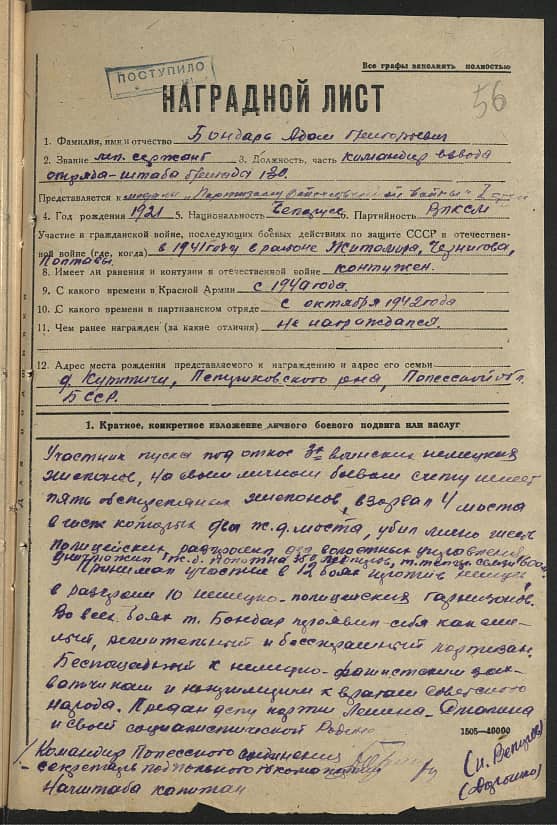 Все графы заполнять полностью
ПОСТУПИЛО
НАГРАДНОЙ ЛИСТ
56
1. Фамилия, имя и отчество Бондарь Адам Григорьевич
2. Звание мл. сержант 3. Должность, часть командир взвода
отряда-штаба бригады 130.
Представляется к медали "Партизану Отечественной войны" I
4. Год рождения 1921 5. Национальность Белорус 6. Партийность ВЛКСМ
Участие в гражданской войне, последующих боевых действиях по защите СССР и отечествен-
ной войне (где, когда) в 1941 году в районе Житомира, Чернигова,
Полтавы.
8. Имеет ли ранения и контузии в отечественной войне контужен.
9. С какого времени в Красной Армии с 1940 года.
10. С какого времени в партизанском отряде с октября 1942 года
11. Чем ранее награжден (за какие отличия) не награждался.
12. Адрес места рождения представляемого к награждению и адрес его семьи
д. Петриковского р-на, Полесской обл.
БССР.
1. Краткое, конкретное изложение личного боевого подвига или заслуг
Участник пуска под откос воинских немецких
эшелонов, на своем личном боевом счету имеет
пять обстрелянных эшелонов, взорвал 4 моста
в числе которых два ж.д. моста, убил
полицейских, разгромил два волостных управления
уничтожил ж.д. полотна 350 связи
Принимал участие в 12 боях против немцев
в разгроме 10 немецко-полицейских гарнизонов.
Во всех боях т. Бондарь проявил себя как сме-
лый, решительный и бесстрашный партизан.
Беспощадный к немецко-фашистским зах-
ватчикам и к врагам советского
народа. Предан делу партии Ленина-Сталина
и своей социалистической Родине
1505-40000
Командир Полесского соединения
- секретарь подпольного обкома
Начштаба капитан